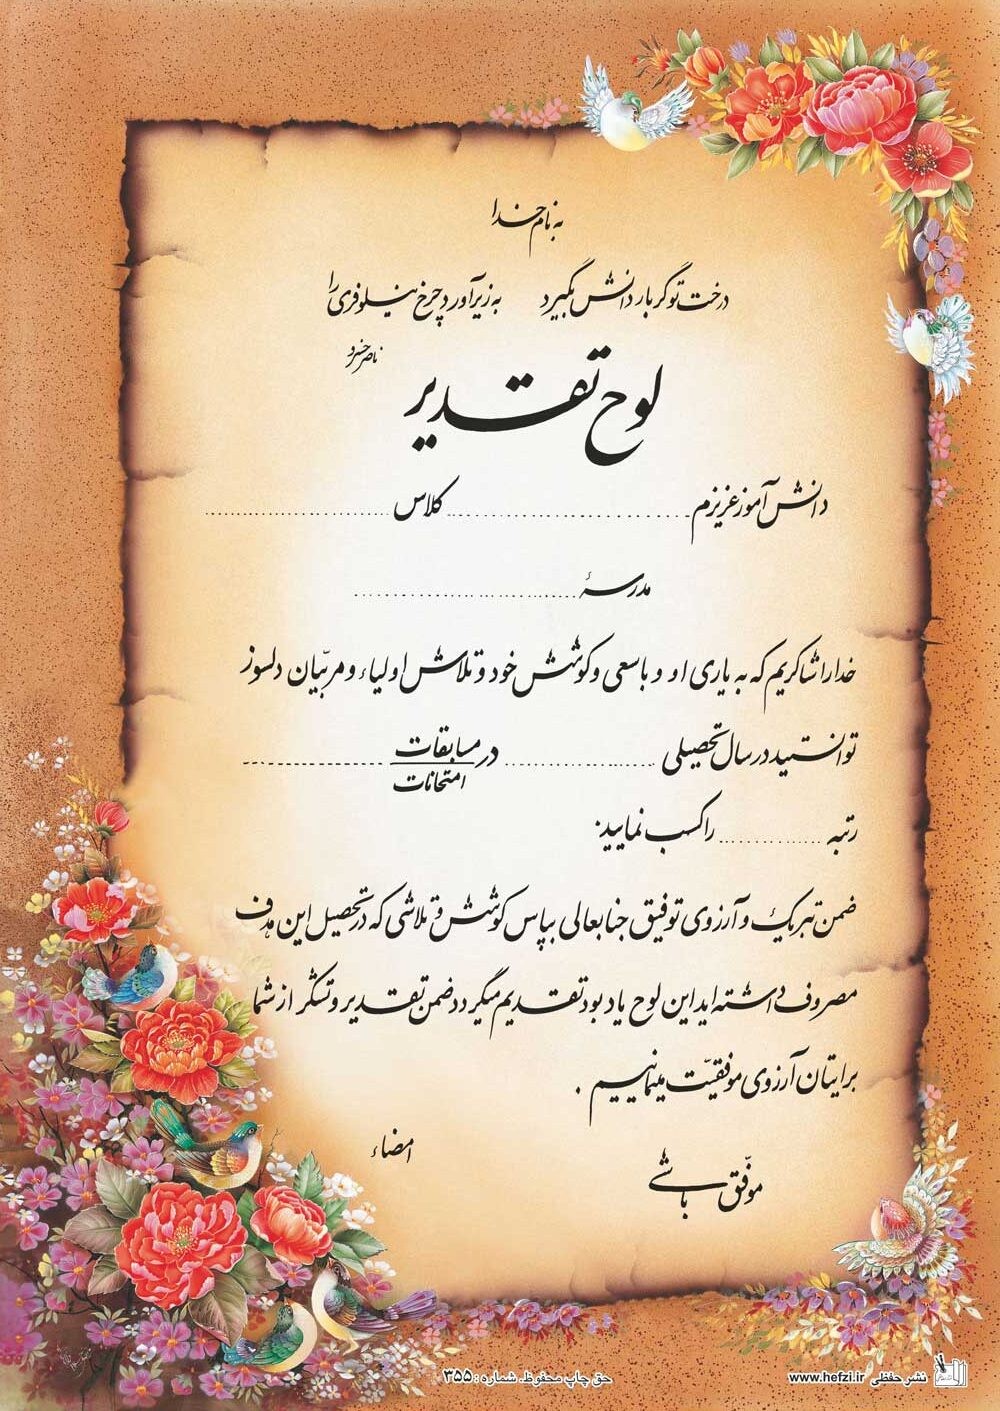 به نام خدا
درخت تو گر بار دانش بگیرد به زیر آورد چرخ نیلوفری را
ناصر خسرو
لوح تقدیر
دانش آموز عزیزم ........................ کلاس ........................
مدرسهٔ ........................
خدا را شاکریم که به یاری او و با سعی و کوشش خود و تلاش اولیاء و مربّیان دلسوز
توانستید در سال تحصیلی .................. در مسابقات ------------------
امتحانات
رتبه .............. را کسب نمایید.
ضمن تبریک و آرزوی توفیق جنابعالی بپاس کوشش و تلاشی که در تحصیل این هدف
مصروف داشته اید این لوح یادبود تقدیم میگردد ضمن تقدیر و تشکر از شما
برایتان آرزوی موفقیّت مینمائیم .
امضاء
موفّق باشی
نشر حفظی www.hefzi.ir
حق چاپ محفوظ. شماره : ۳۵۵